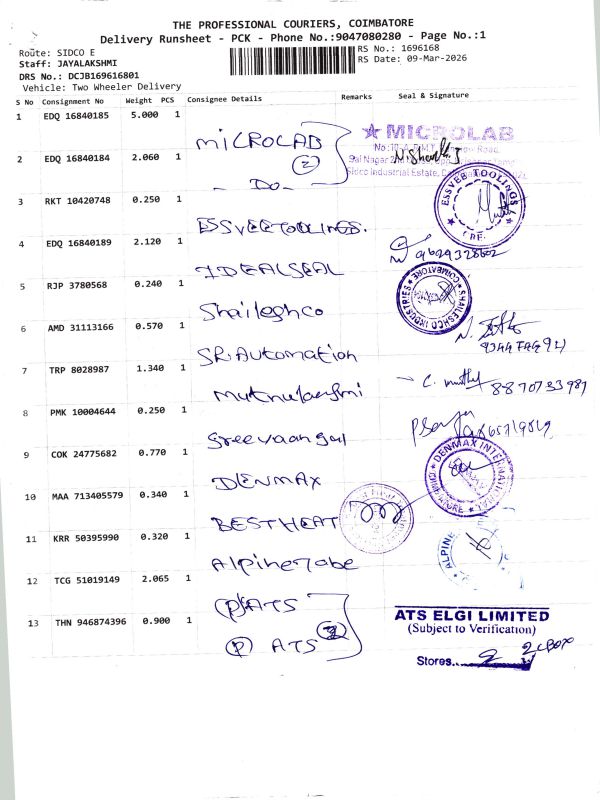 THE PROFESSIONAL COURIERS, COIMBATORE
Delivery Runsheet - PCK - Phone No.:9047080280 - Page No.:1
Route: SIDCO E
RS No.: 1696168
Staff: JAYALAKSHMI
RS Date: 09-Mar-2026
DRS No.: DCJB169616801
Vehicle: Two Wheeler Delivery
S No Consignment No Weight PCS Consignee Details Remarks Seal & Signature
1 EDQ 16840185 5.000 1 MICROLAB
MICROLAB
2 EDQ 16840184 2.060 1 - DO - 2
Sidco Industrial Estate,
3 RKT 10420748 0.250 1 ESSVEETOOLINGS.
ESSVEE TOOLINGS
CBE.
4 EDQ 16840189 2.120 1 IDEALSEAL
5 RJP 3780568 0.240 1 Shaileshco
SHAILESHCO INDUSTRIES COIMBATORE
6 AMD 31113166 0.570 1 SR.Automation
7 TRP 8028987 1.340 1 Muthulaxmi
C. Muthu 8870733987
8 PMK 10004644 0.250 1 Sreevaangal
9 COK 24775682 0.770 1 DENMAX
DENMAX INTERNATIONAL
10 MAA 713405579 0.340 1 BESTHEAT
11 KRR 50395990 0.320 1 Alpinetobe
ALPINE
12 TCG 51019149 2.065 1 (P) ATS
13 THN 946874396 0.900 1 (P) ATS 2
ATS ELGI LIMITED
(Subject to Verification)
Stores
2 CBOX